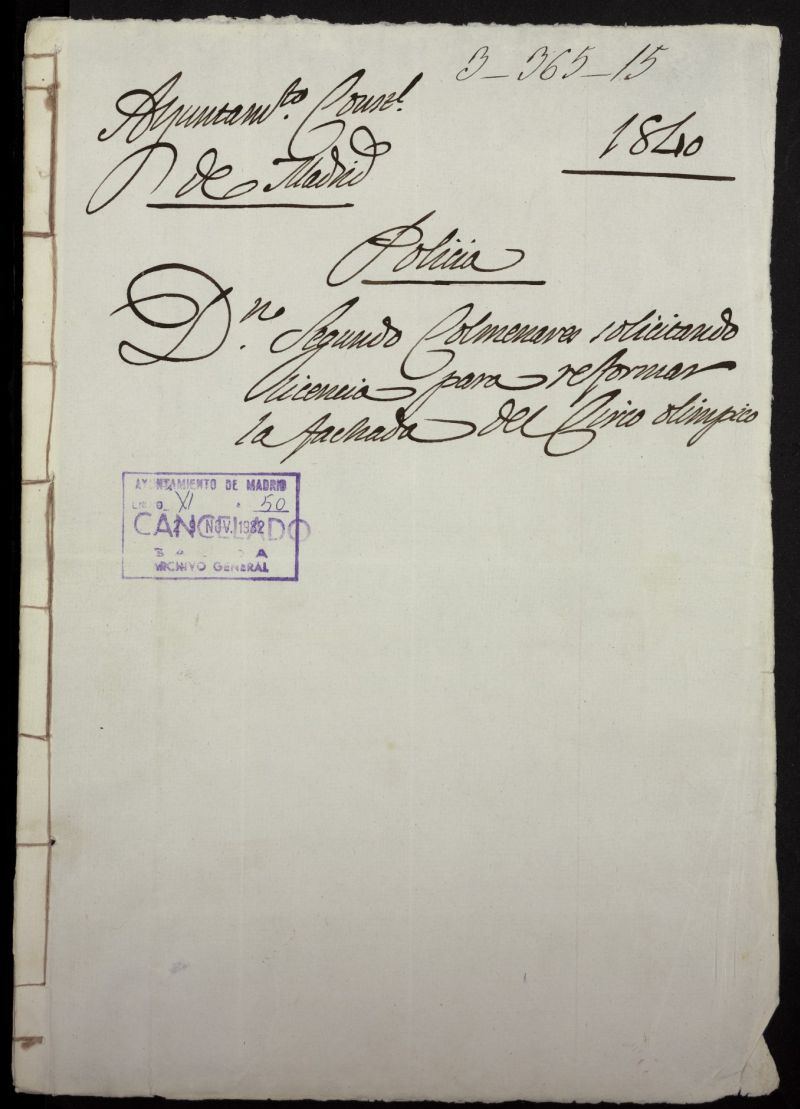 3-365-15
Ayuntamto. Constl.
de Madrid
1840
Policia
Dn. Segundo Colmenares solicitando
licencia para reformar
la fachada del Circo olimpico
AYUNTAMIENTO DE MADRID
XI 50
CANCELADO
29 NOV. 1982
SALIDA
ARCHIVO GENERAL